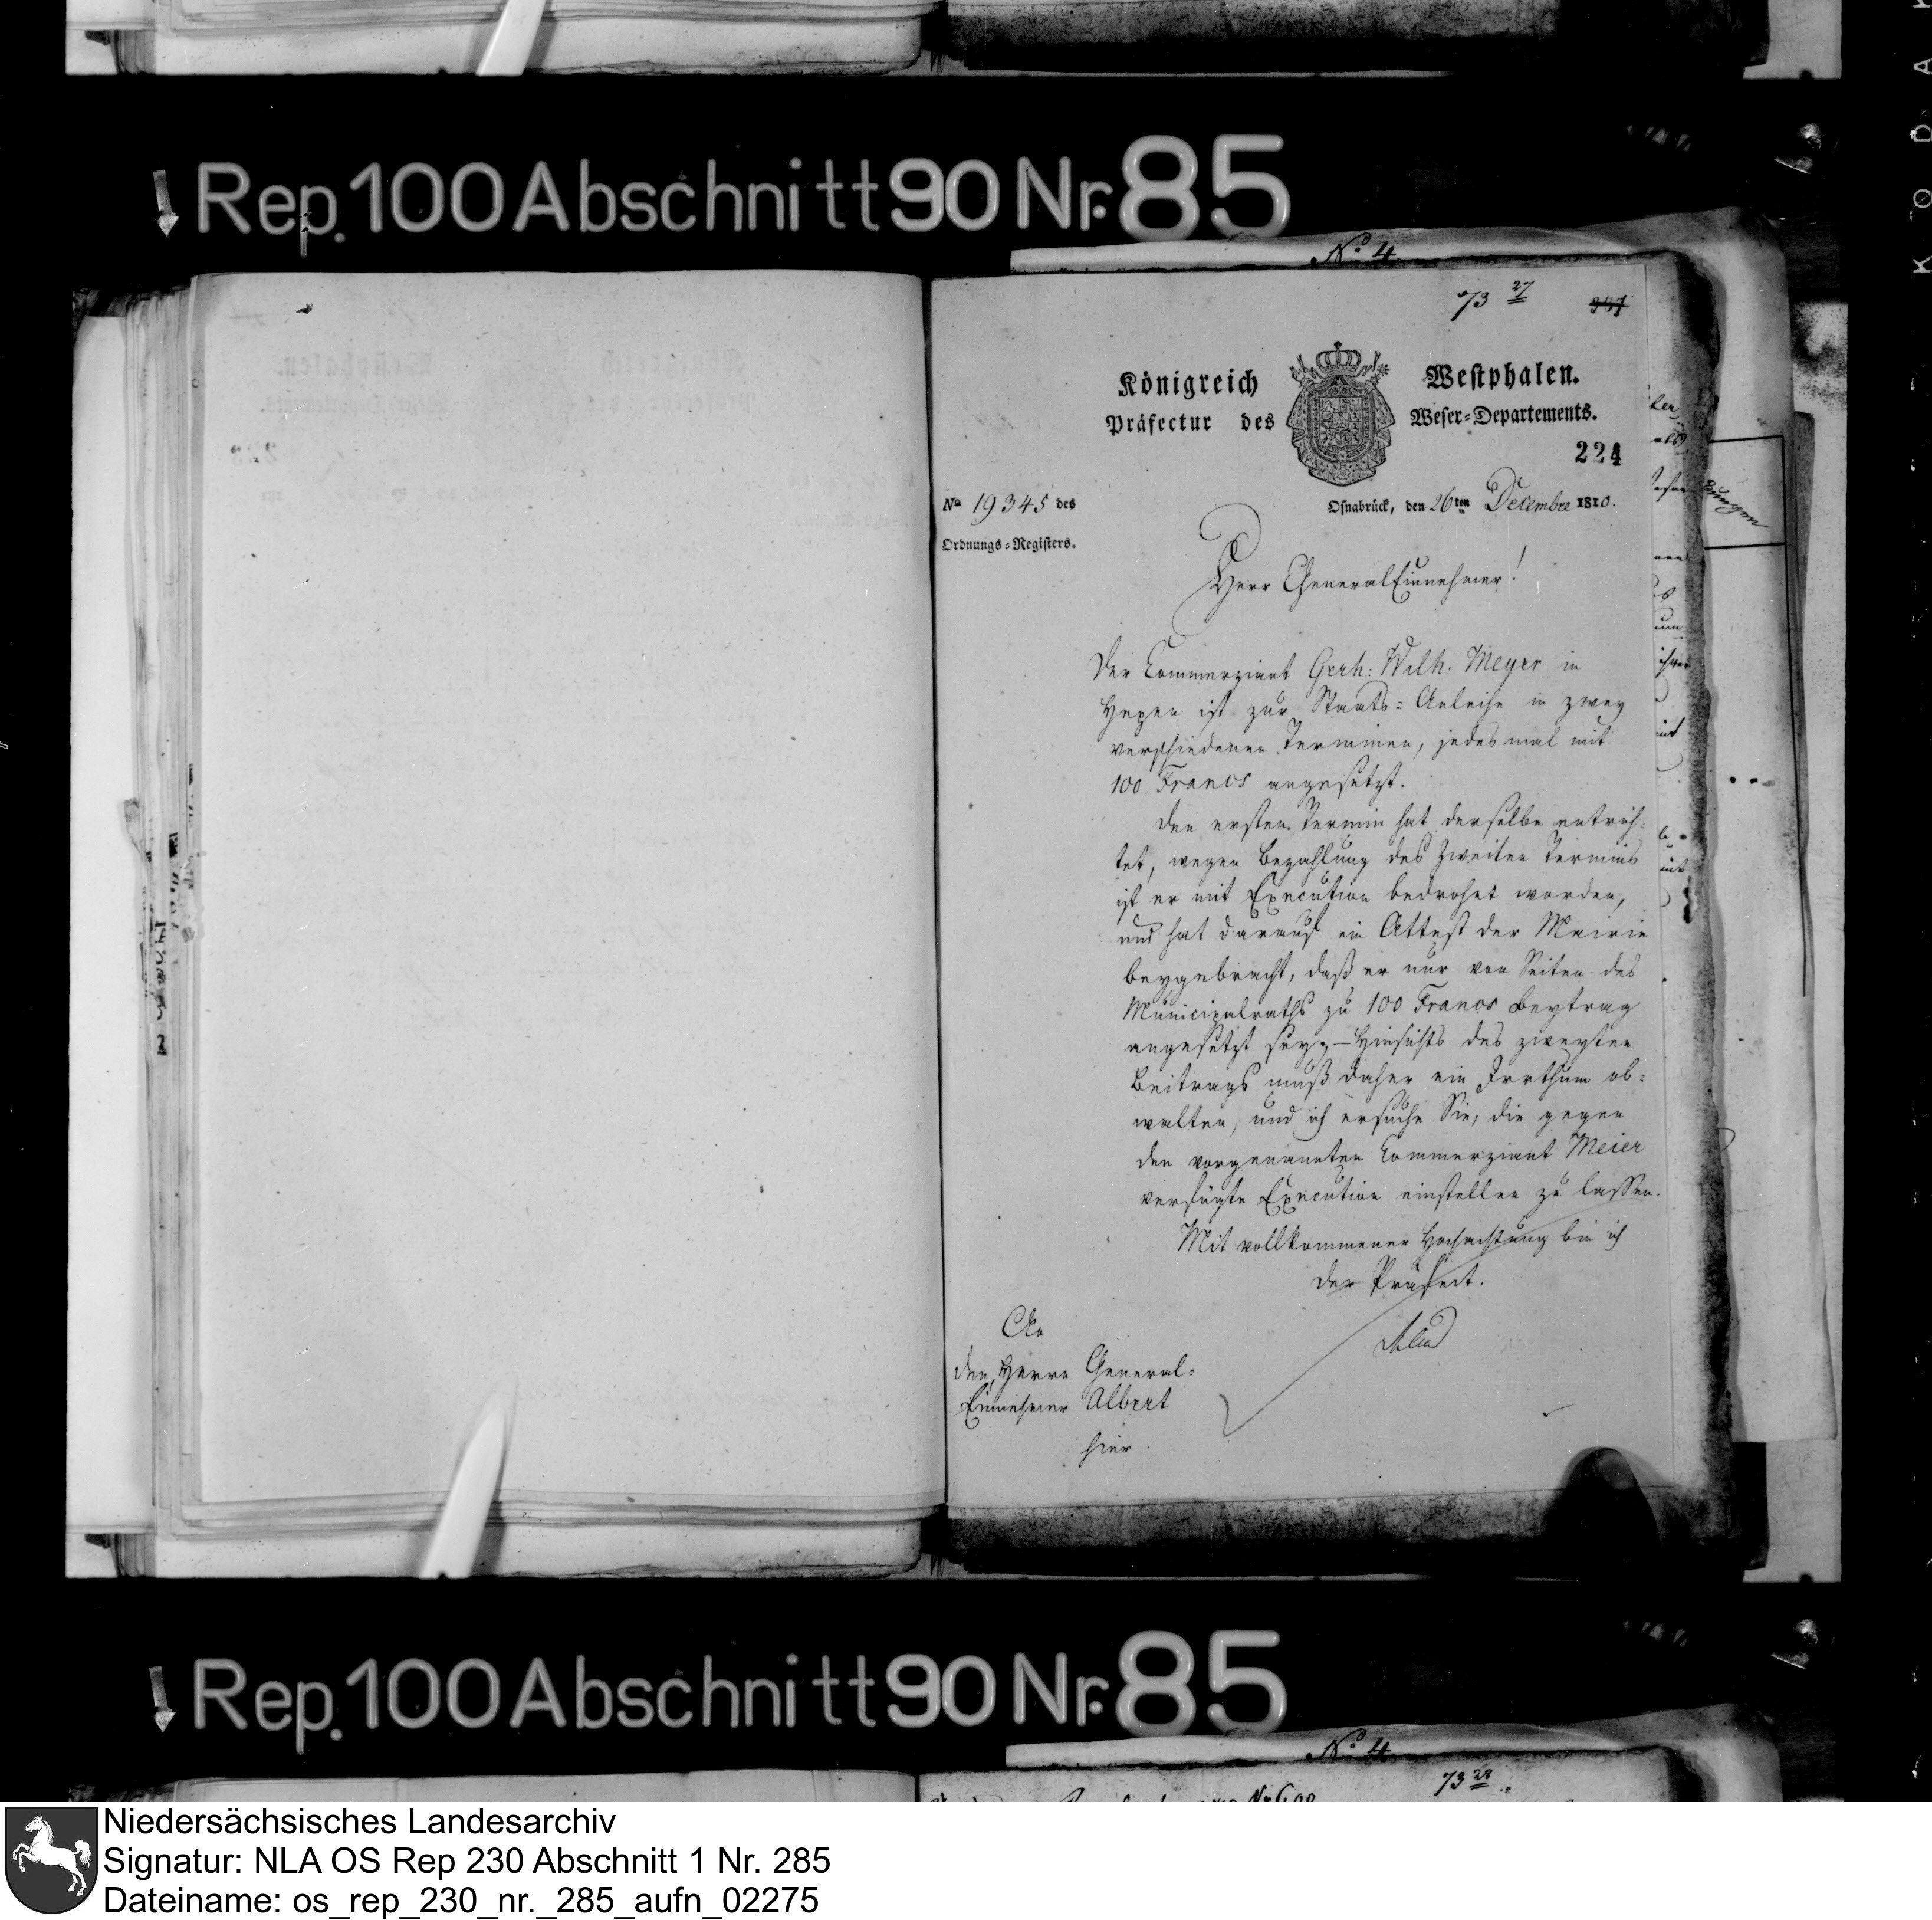 Rep. 100 Abschnitt 90 Nr. 85
No. 4
73 27
Königreich Westphalen.
Präfectur des Weser-Departements.
224
No 19345 des
Ordnungs-Registers.
Osnabrück, den 26ten Decembre 1810.
Herr General Einnehmer!
Der Commerziant Gerh: Wilh: Meyer in
ist zur Staats-Anleihe in zwey
verschiedenen Terminen, jedesmal mit
100 Francs angesetzt.
Den ersten Termin hat derselbe entrich-
tet, wegen Bezahlung des Zweiten Termins
ist er mit Execution bedrohet worden,
und hat darauf ein Attest der Mairie
beygebracht, daß er nur von Seiten des
Municipalraths zu 100 Francs Beytrag
angesetzt sey, – Hinsichts des zweyten
Beitrags muß daher ein Irrthum ob-
walten, und ich ersuche Sie, die gegen
den vorgenannten Commerziant Meier
verfügte Execution einstellen zu lassen.
Mit vollkommener Hochachtung bin ich
der Präfect.
An
den Herrn General-
Einnehmer Albert
hier
Rep. 100 Abschnitt 90 Nr. 85
No. 4
73 28
KODAK
Niedersächsisches Landesarchiv
Signatur: NLA OS Rep 230 Abschnitt 1 Nr. 285
Dateiname: os_rep_230_nr._285_aufn_02275